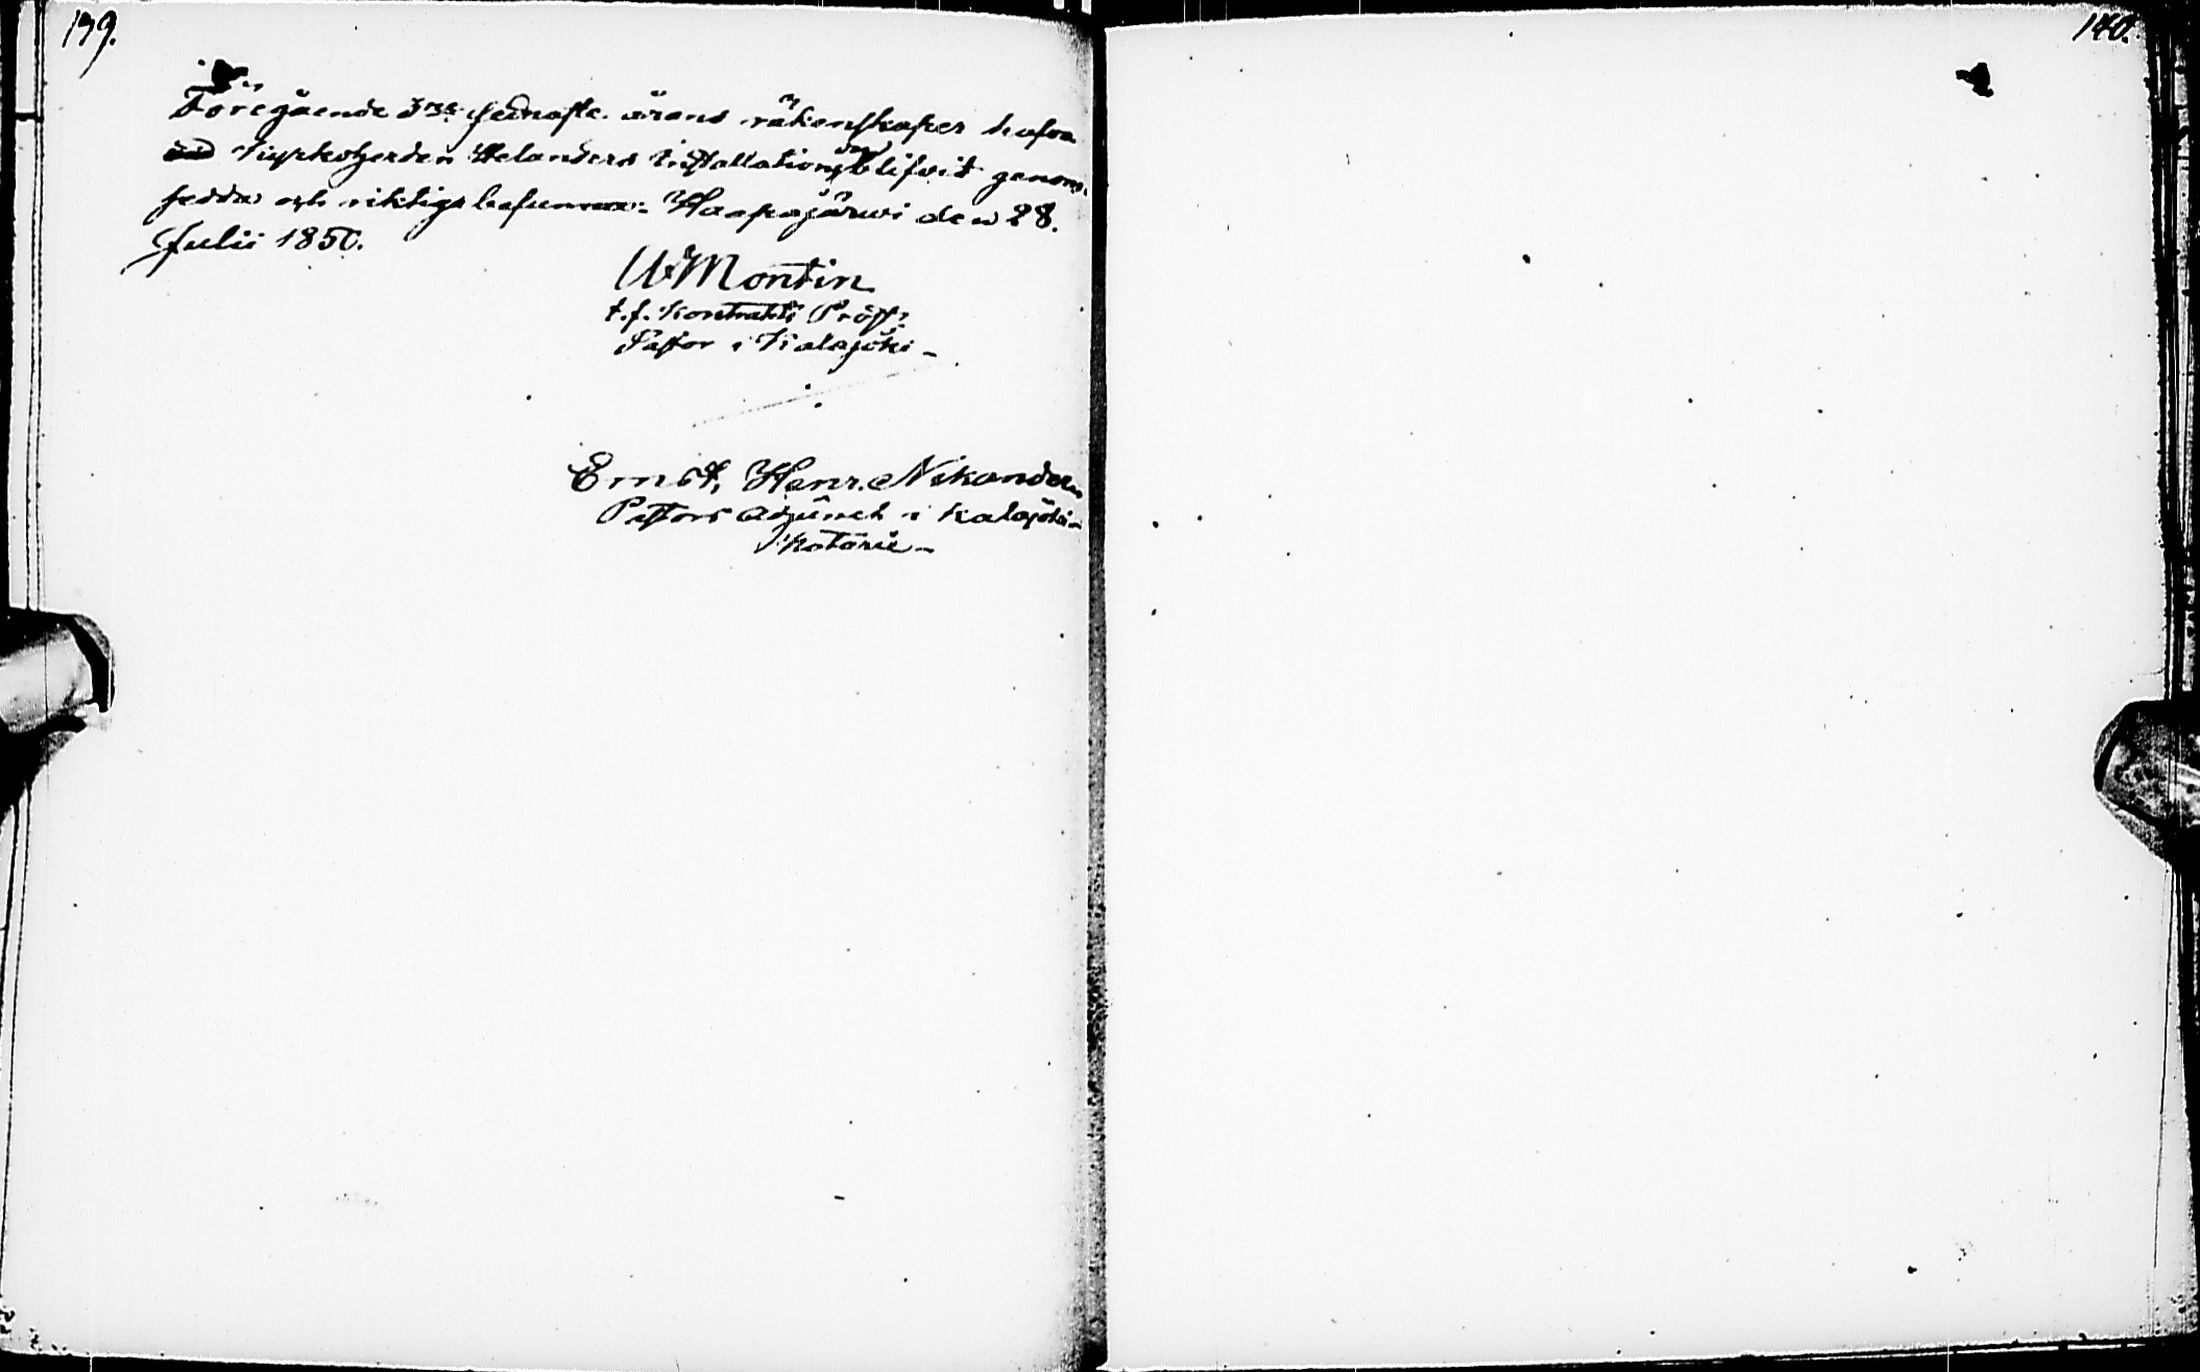 139.
140.
Föregående 3ne sednaste årens räkenskaper hafva
vid Kyrkoherden Helanders Installation, blifvit genom-
sedda och riktiga befunna. Haapajärvi den 28.
Julii 1850.
Montin
t.f. Kontrakts Prost,
Pastor i Kalajoki -
Ernst, Henr. Nikander,
Pastors Adjunct i Kalajoki -
Notarie -